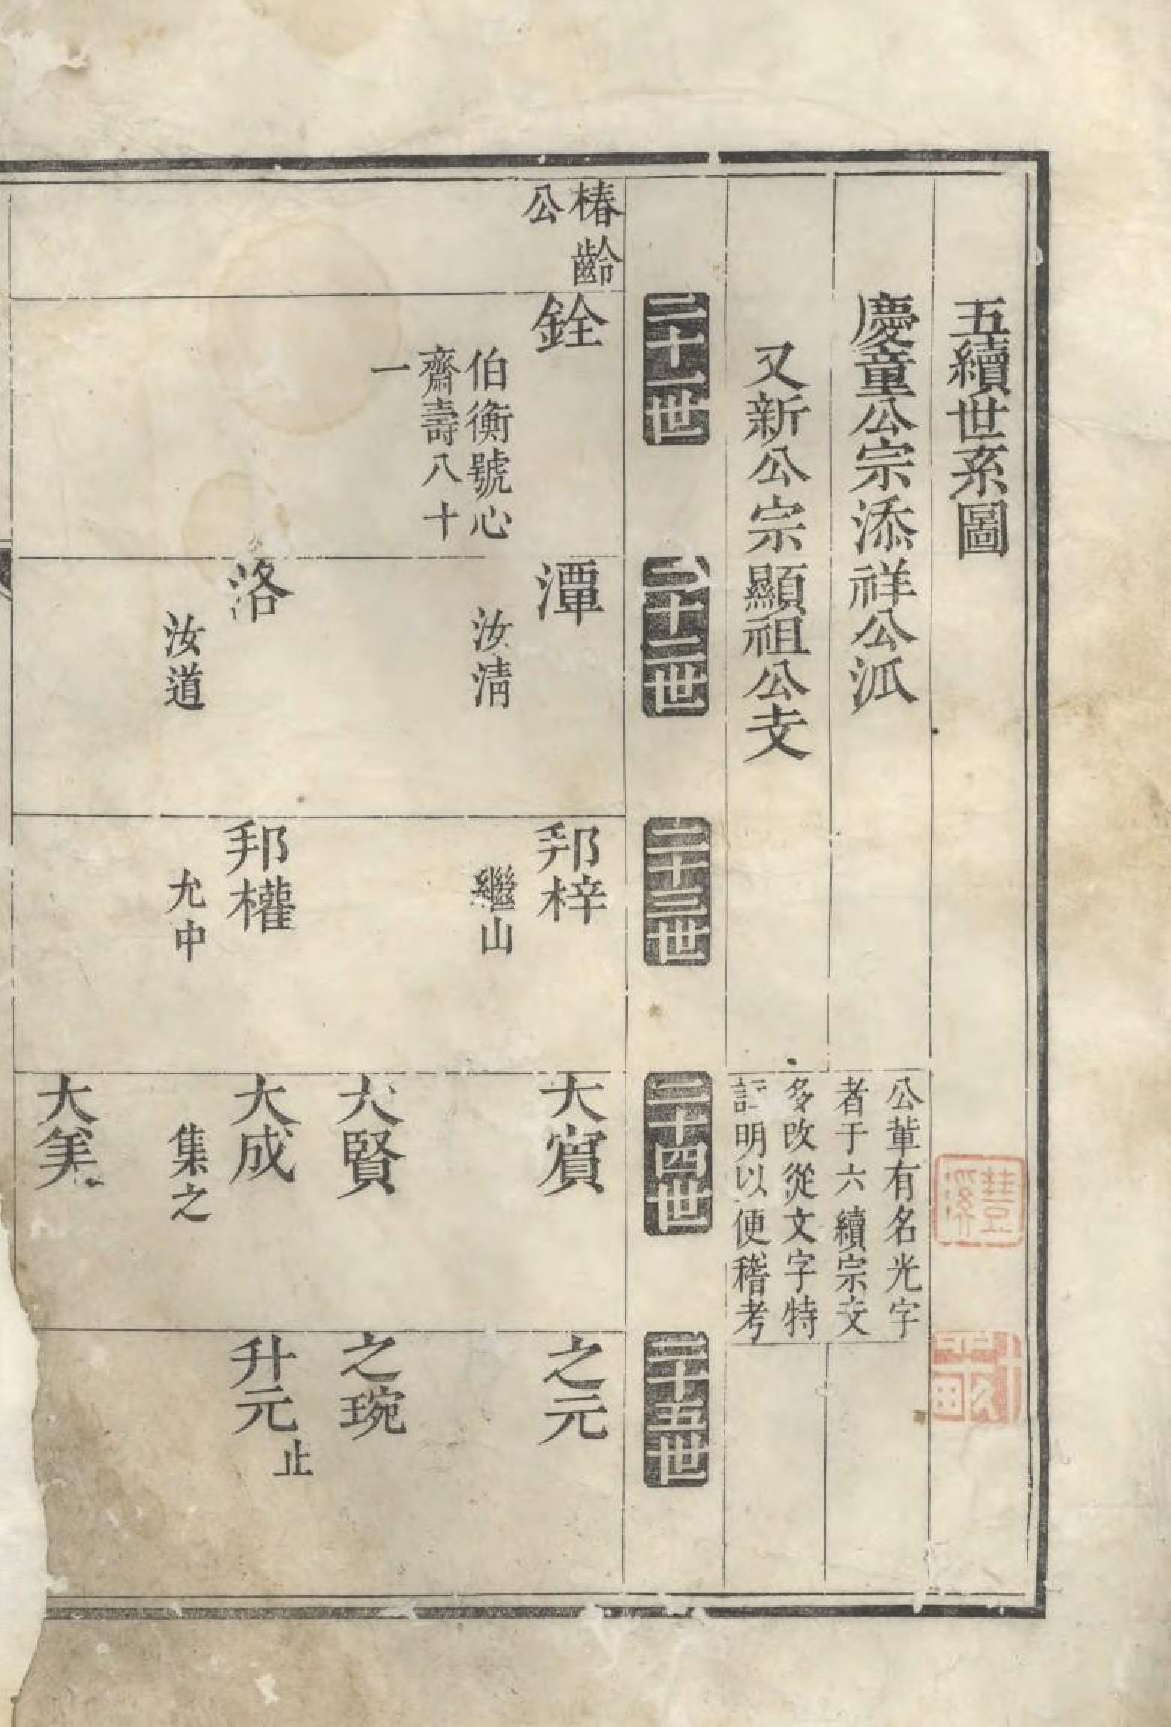 五續世系圖
慶童公宗添祥公派
又新公宗顯祖公支
公軰有名光字
者于六續宗支
多改從文字特
註明以便稽考
二十一世
二十二世
二十三世
二十四世
二十五世
椿齡
公
銓
伯衡號心
齋壽八十
一
潭
汝淸
洛
汝道
邦梓
繼山
邦權
允中
大賔
大賢
大成
集之
大美
之元
之琬
升元
止